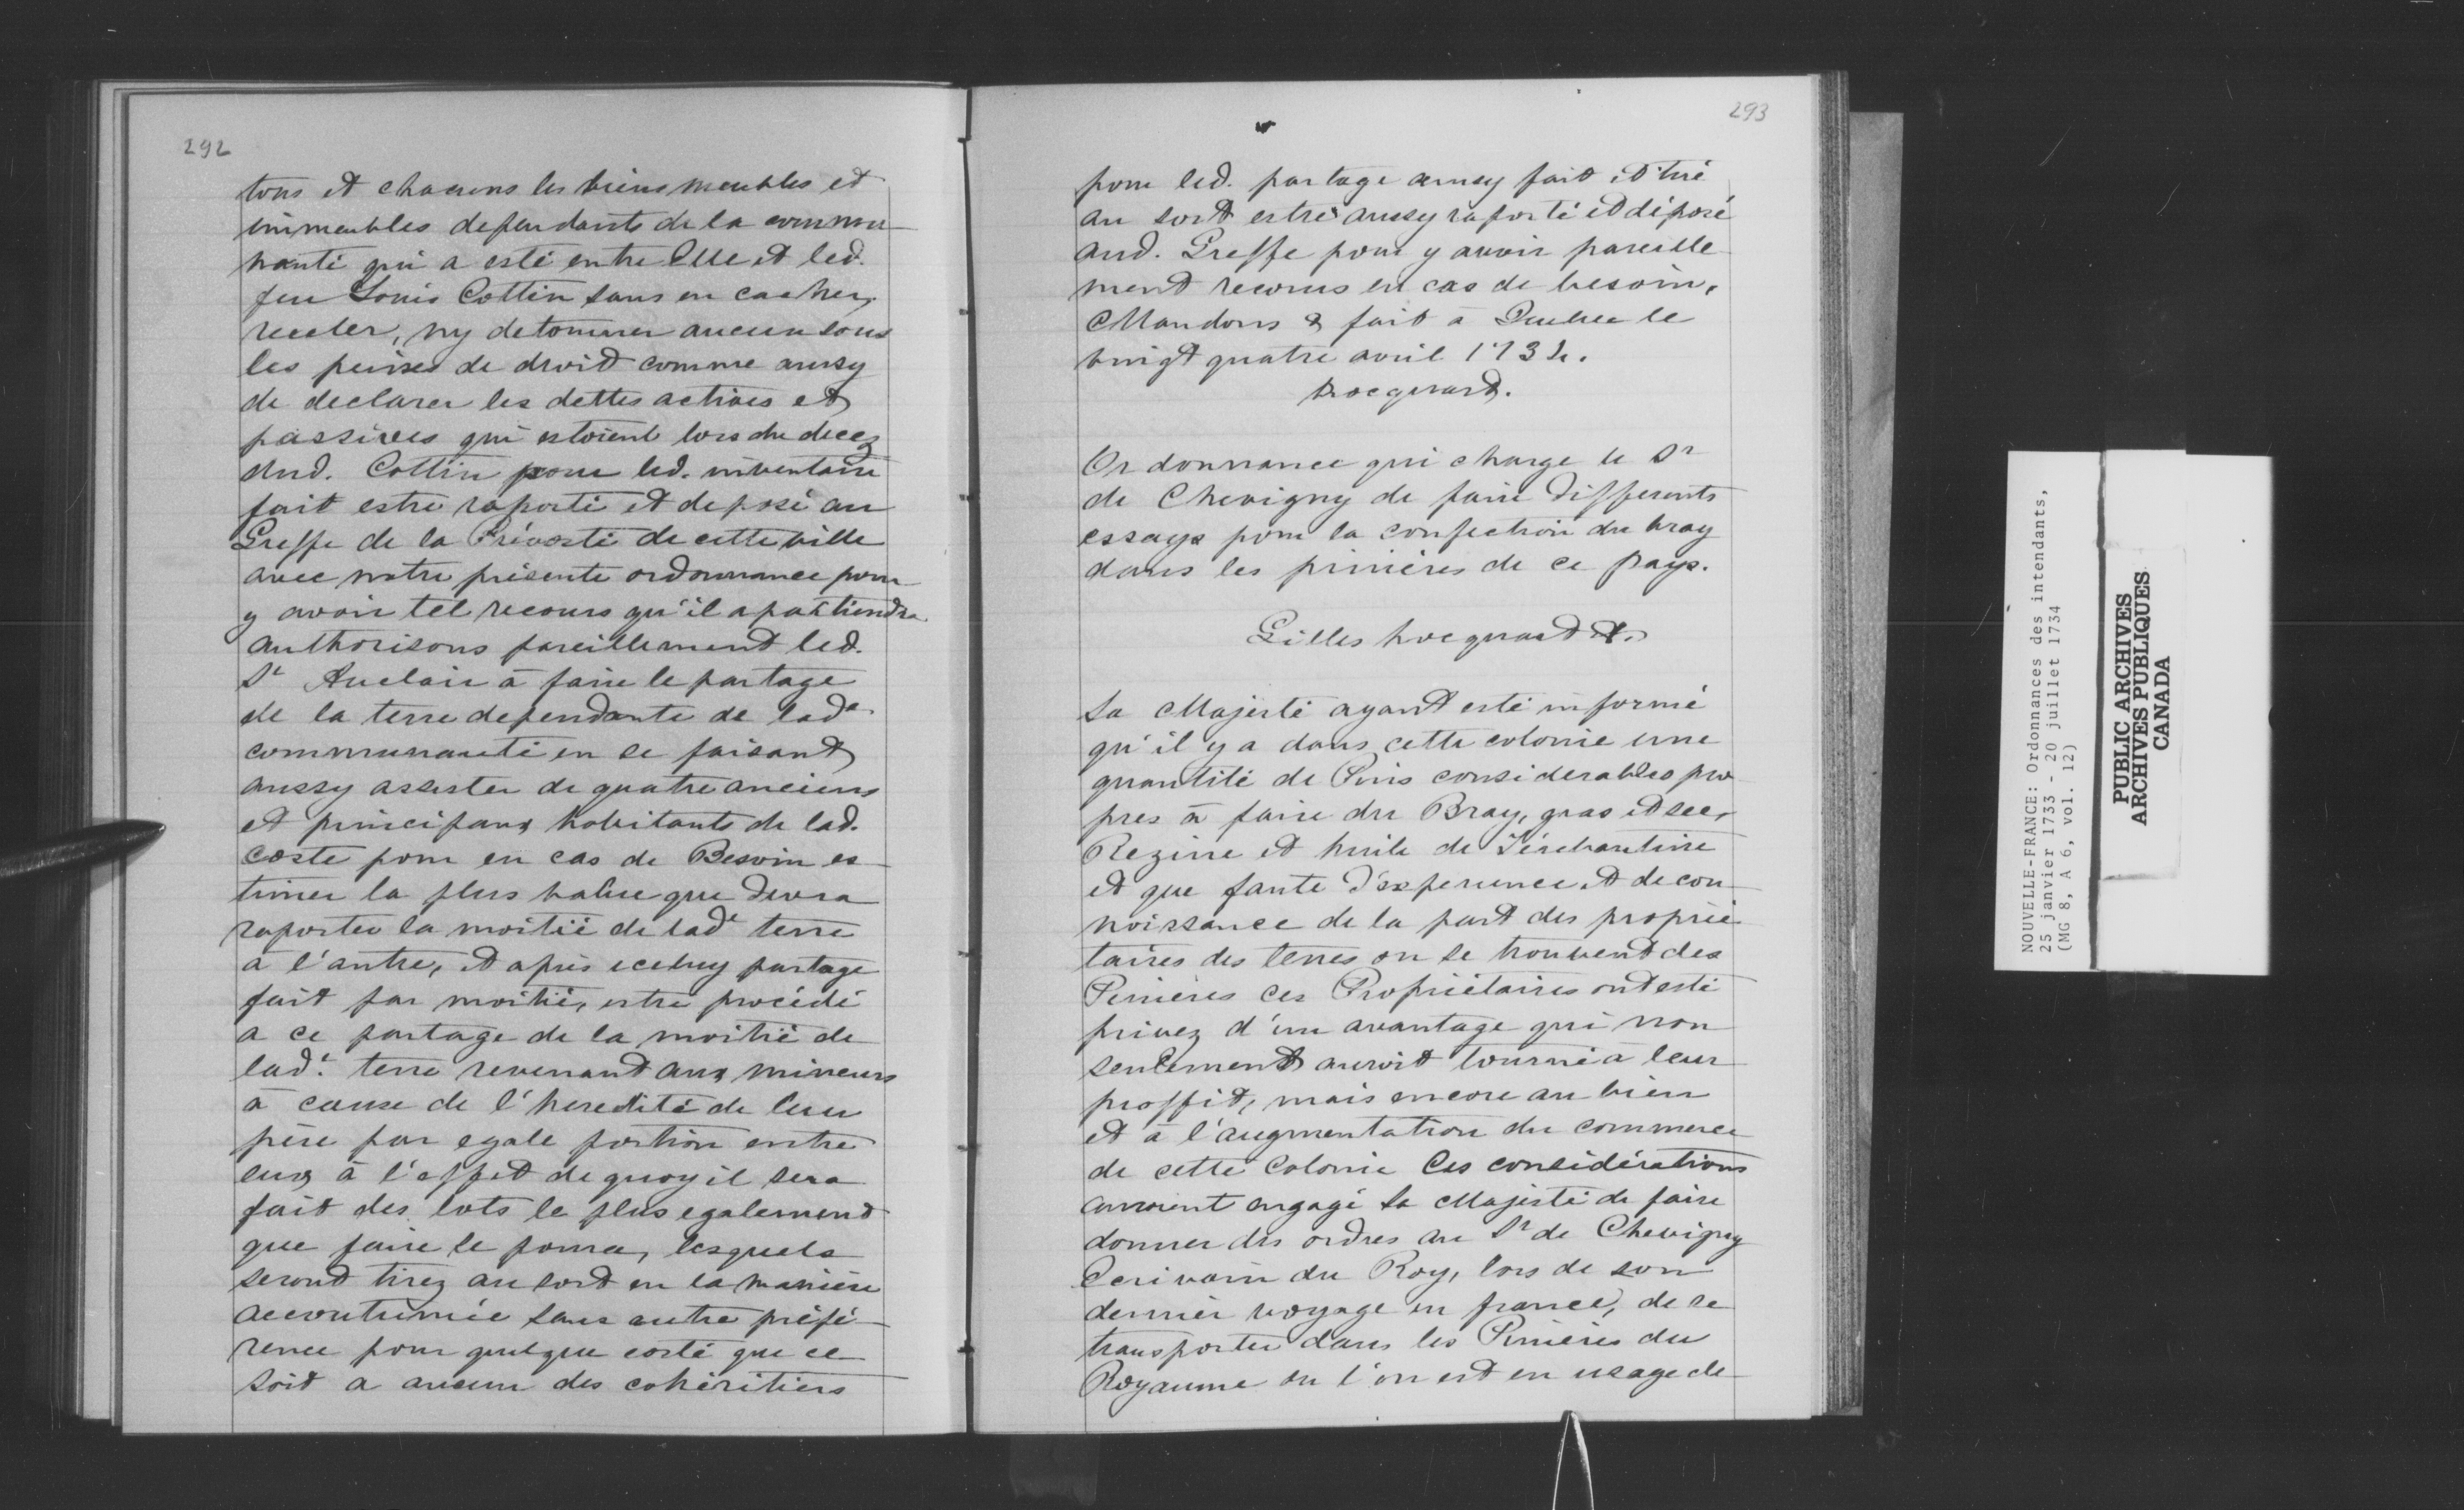 292
tous et chacuns les biens meubles et
immeubles dependants de la commu-
nauté qui a esté entre Elle et led.
feu Louis Cottin sans en cacher,
receler, ny detourner aucun sous
les peines de droit comme aussy
de declarer les dettes actives et
passives qui estoient lors du decez
dud. Cottin pour led. inventaire
fait estre raporté et deposé au
Greffe de la Prévosté de cette ville
avec notre présente ordonnance pour
y avoir tel recours qu'il apartiendra
authorisons pareillement led.
Sr Auclair à faire le partage
de la terre dependante de lade
communauté en se faisant
aussy assister de quatre anciens
et principaux habitants de lad.
coste pour en cas de Besoin es-
timer la plus value que devra
raporter la moitié de lade terre
à l'autre, et après iceluy partage
fait par moitié, estre procédé
a ce partage de la moitié de
lade. terre revenant aux mineurs
à cause de l'heredité de leur
père par egale portion entre
eux à l'effet de quoy il sera
fait des lots le plus egalement
que faire le poura, lesquels
seront tirez au sort en la manière
accoutumée sans autre préfé-
rence pour quelque costé que ce
soit a aucun des cohéritiers
293
pour led. partage aussy fait et tiré
au sort estre aussy raporté et déposé
aud. Greffe pour y avoir pareille
ment recours en cas de besoin,
Mandons & fait à Quebec le
vingt quatre avril 1734.
hocquart.
Ordonnance qui charge le Sr
de Chevigny de faire differents
essays pour la confection du bray
dans les pinières de ce pays.
Gilles hocquart &.
Sa Majesté ayant esté informé
qu'il y a dans cette colonie une
quantité de Pins considerables pro
pres à faire du Bray, gras et sec,
Rezine et huile de Térébantine
et que faute d'experience et de con-
noissance de la part des proprié
taires des terres ou se trouvent des
Pinières ces Propriétaires ont esté
privez d'un avantage qui non
seulement auroit tourné à leur
proffit, mais encore au bien
et à l'augmentation du commerce
de cette Colonie Ces considérations
auroient engagé Sa Majesté de faire
donner des ordres au Sr de Chevigny
Ecrivain du Roy, lors de son
dernier voyage en france, de se
transporter dans les Pinières du
Royaume ou l'on est en usage de
NOUVELLE-FRANCE: Ordonnances des intendants,
25 janvier 1733 - 20 juillet 1734
(MG 8, A 6, vol. 12)
PUBLIC ARCHIVES
ARCHIVES PUBLIQUES
CANADA